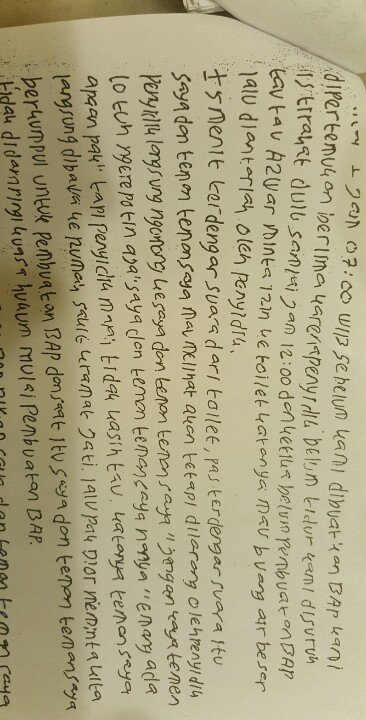 ± Jam 07:00 WIB sebelum kami dibuatkan BAP kami
dipertemukan berlima karena penyidik belum tidur kami disuruh
istirahat dulu sampai jam 12:00 dan ketika belum pembuatan BAP
tau tau Azwar minta izin ke toilet katanya mau buang air besar
lalu diantarlah oleh penyidik.
±5 menit terdengar suara dari toilet, pas terdengar suara itu
saya dan teman teman saya mau melihat akan tetapi dilarang oleh penyidik
penyidik langsung ngomong ke saya dan teman teman saya "jangan kaya temen
lo tuh ngerepotin apa" saya dan teman teman saya nanya "emang ada
apaan pak" tapi penyidik mapi tidak kasih tau. katanya teman saya
langsung dibawa ke rumah sakit kramat jati. lalu pak Dior meminta kita
berkumpul untuk pembuatan BAP dan saat itu saya dan teman teman saya
tidak didampingi kuasa hukum mulai pembuatan BAP.
saya dan teman teman saya